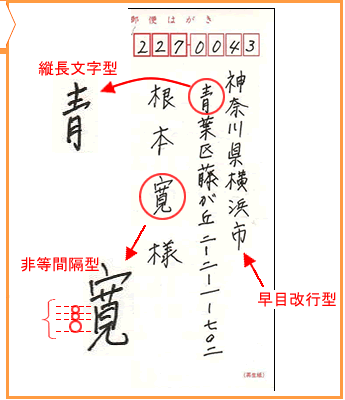 郵便はがき
227-0043
神奈川県横浜市
青葉区藤が丘二ー二ー一ー七〇二
根本寛様
縦長文字型
青
非等間隔型
寛
早目改行型